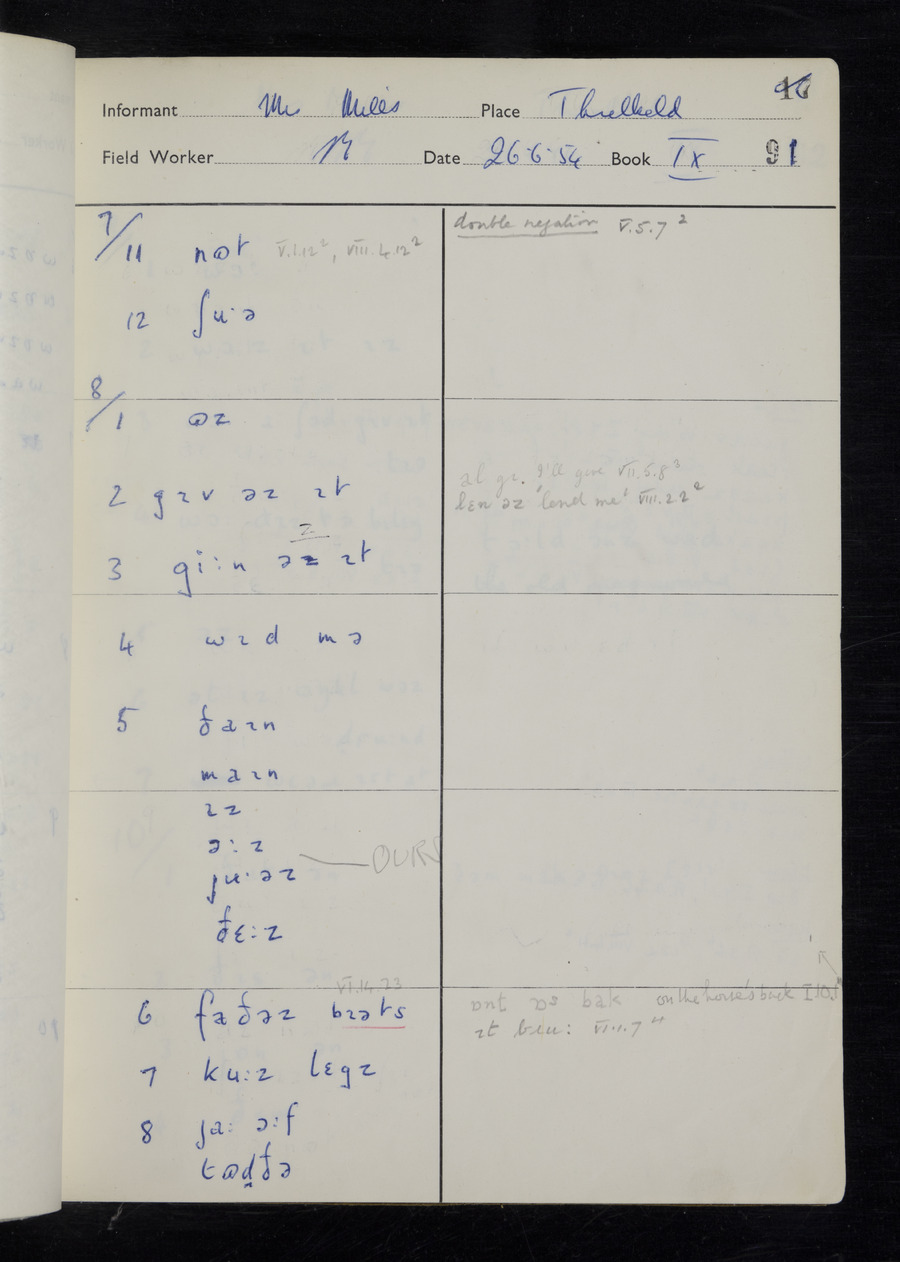 46
Informant Mr Miles Place Threlkeld
Field Worker Date 26·6·54 Book IX 91
7/11 nɒt V.1.12², VIII.4.12²
12 ʃuˑə
8/1 ɒz
2 gɪv əz ɪt
z
3 giːn əz ɪt
4 wɪd mə
5 ðaɪn
maɪn
ɪz
əːz OURS
juˑəz
ðɛːz
VI.14.23
6 faðəz bɪəts
7 kuːz lɛgz
8 ja: ə:f
double negation V.5.7²
I'll give VII.5.8³
lɛn əz 'lend me' VIII.2.2²
bak on the horse's back I.10.5
ɪt